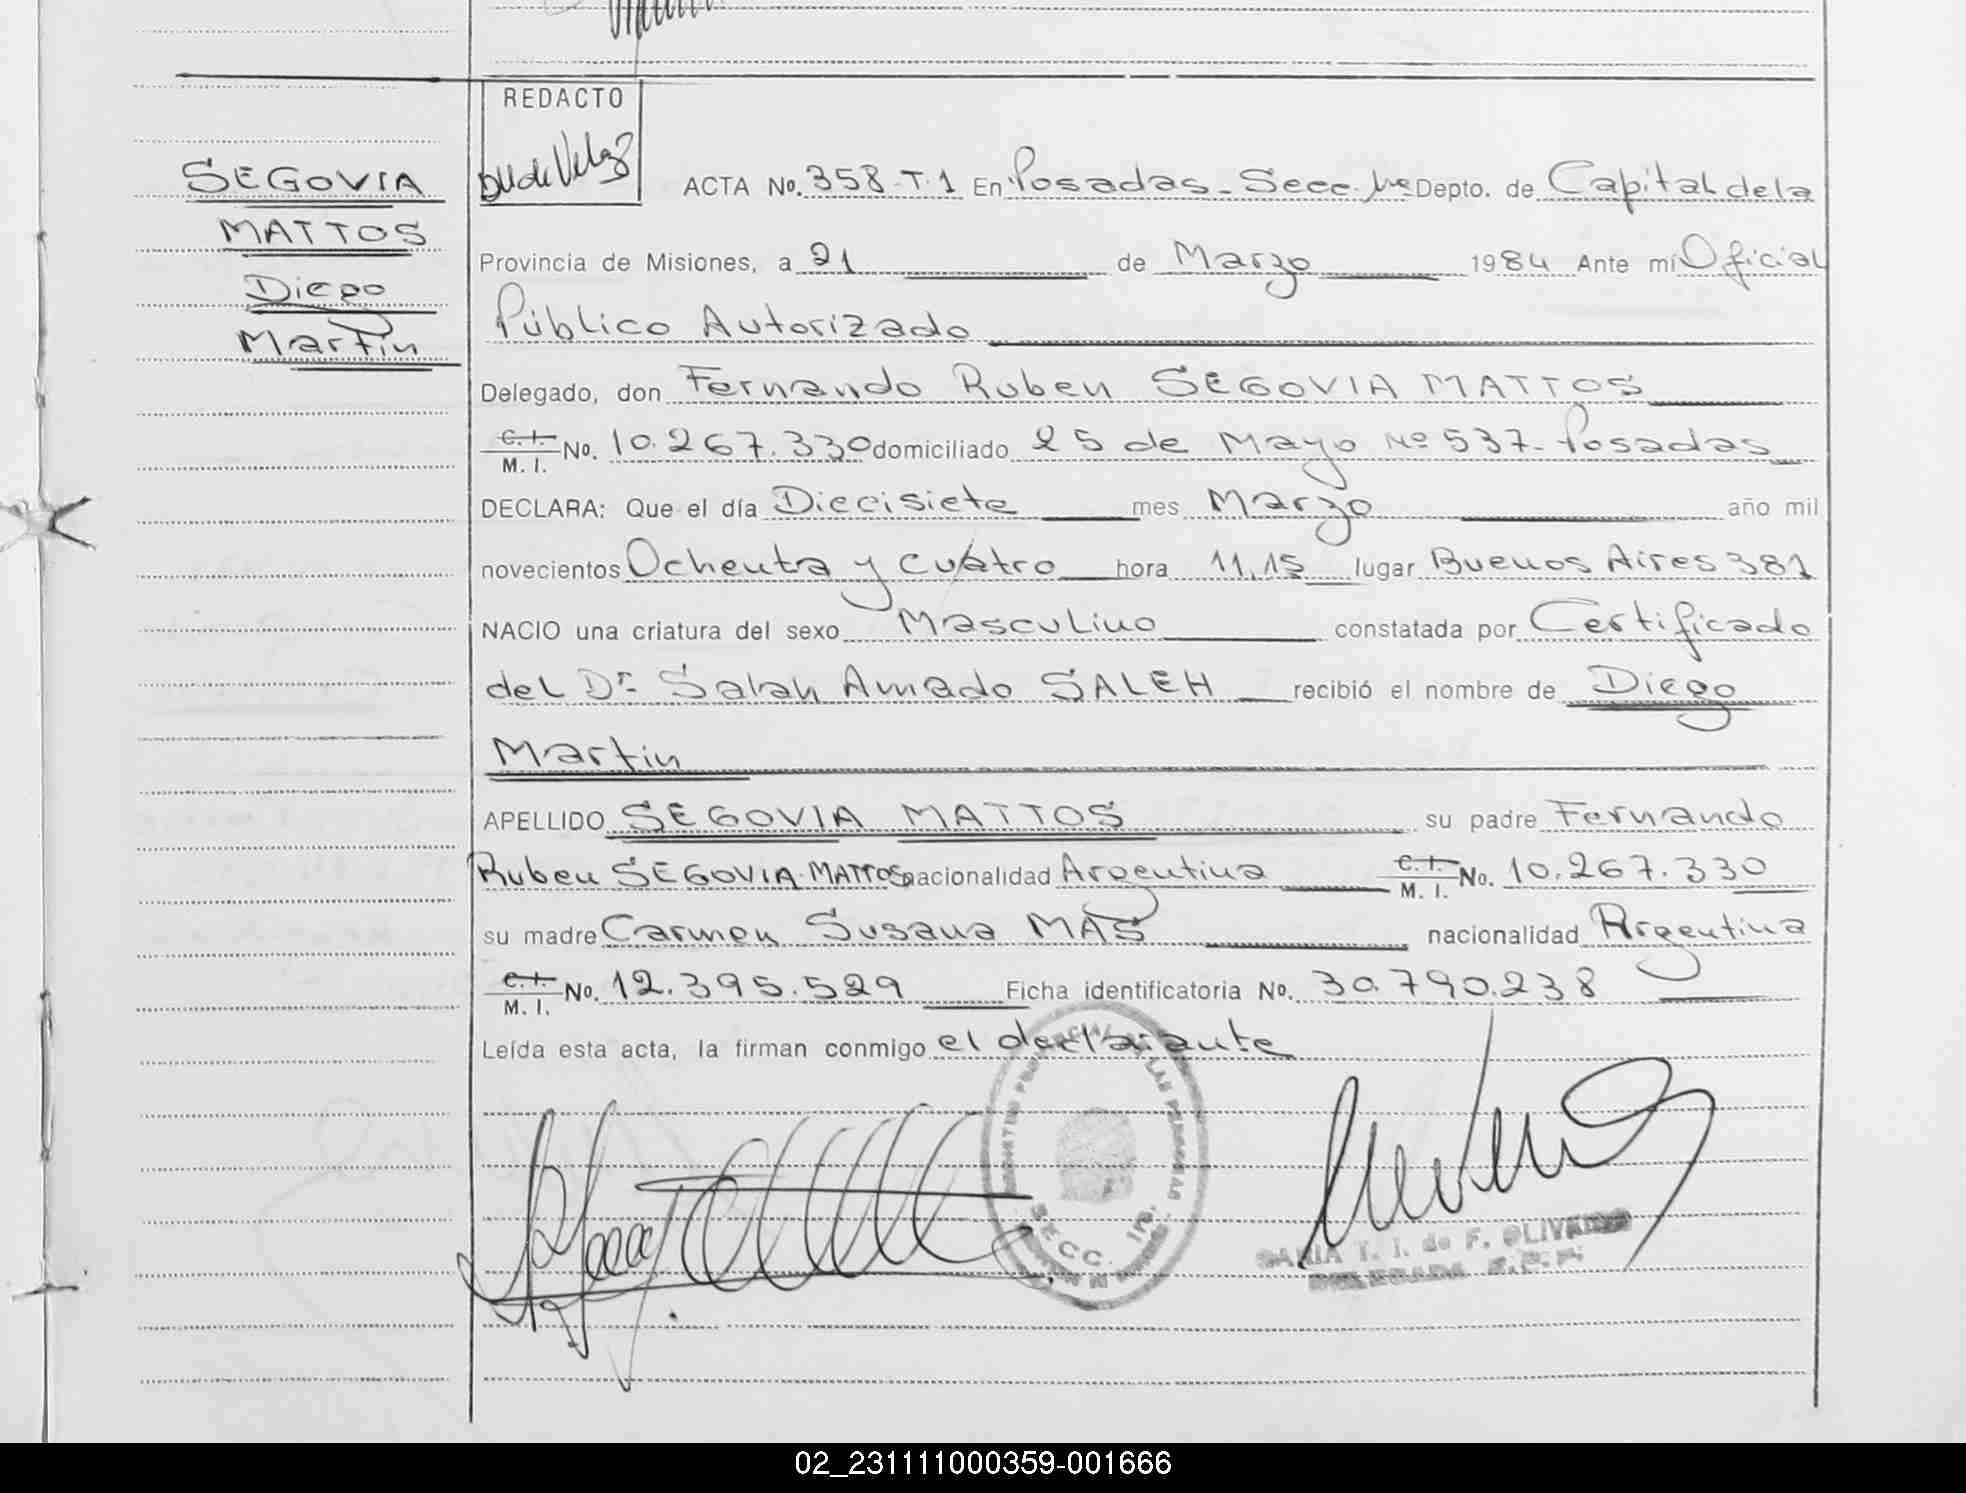 REDACTO
SEGOVIA
MATTOS
Diego
Martin
ACTA No. 358-T.1 En Posadas-Secc. 1ra Depto. de Capital de la
Provincia de Misiones, a 21 de Marzo 1984 Ante mí Oficial
Público Autorizado
Delegado, don Fernando Ruben SEGOVIA MATTOS
C.I. M. I. No. 10.267.330 domiciliado 25 de Mayo Nº 537- Posadas
DECLARA: Que el día Diecisiete mes Marzo año mil
novecientos Ochenta y cuatro hora 11,15 lugar Buenos Aires 381
NACIO una criatura del sexo Masculino constatada por Certificado
del Dr. Salah Amado SALEH recibió el nombre de Diego
Martin
APELLIDO SEGOVIA MATTOS su padre Fernando
Ruben SEGOVIA-MATTOS nacionalidad Argentina C.I. M. I. No. 10.267.330
su madre Carmen Susana MAS nacionalidad Argentina
C.I. M. I. No. 12.395.529 Ficha identificatoria No. 30.790.238
Leída esta acta, la firman conmigo el declarante
SECC. 1ra.
MARIA T. I. de F. OLIVEIRA
DELEGADA
02_231111000359-001666